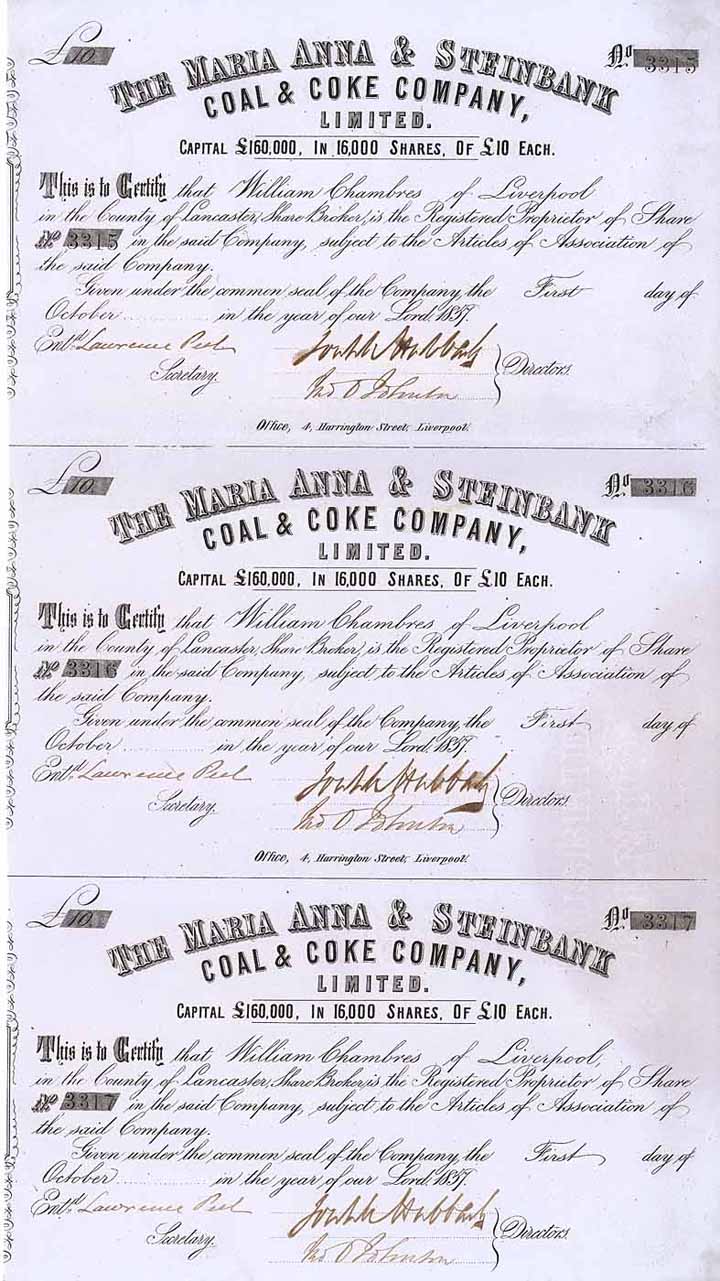 £10.
No 3315
THE MARIA ANNA & STEINBANK
COAL & COKE COMPANY,
LIMITED.
CAPITAL £160,000, IN 16,000 SHARES, OF £10 EACH.
This is to Certify that William Chambres of Liverpool
in the County of Lancaster, Share Broker, is the Registered Proprietor of Share
No 3315 in the said Company, subject to the Articles of Association of
the said Company.
Given under the common seal of the Company, the First day of
October in the year of our Lord 1857.
Entd. Lawrence Peel
Secretary.
Directors
Office, 4, Harrington Street, Liverpool.
£10.
No 3316
THE MARIA ANNA & STEINBANK
COAL & COKE COMPANY,
LIMITED.
CAPITAL £160,000, IN 16,000 SHARES, OF £10 EACH.
This is to Certify that William Chambres of Liverpool
in the County of Lancaster, Share Broker, is the Registered Proprietor of Share
No 3316 in the said Company, subject to the Articles of Association of
the said Company.
Given under the common seal of the Company, the First day of
October in the year of our Lord 1857.
Entd. Lawrence Peel
Secretary.
Directors
Office, 4, Harrington Street, Liverpool.
£10.
No 3317
THE MARIA ANNA & STEINBANK
COAL & COKE COMPANY,
LIMITED.
CAPITAL £160,000, IN 16,000 SHARES, OF £10 EACH.
This is to Certify that William Chambres of Liverpool,
in the County of Lancaster, Share Broker, is the Registered Proprietor of Share
No 3317 in the said Company, subject to the Articles of Association of
the said Company.
Given under the common seal of the Company, the First day of
October in the year of our Lord 1857.
Entd. Lawrence Peel
Secretary.
Directors